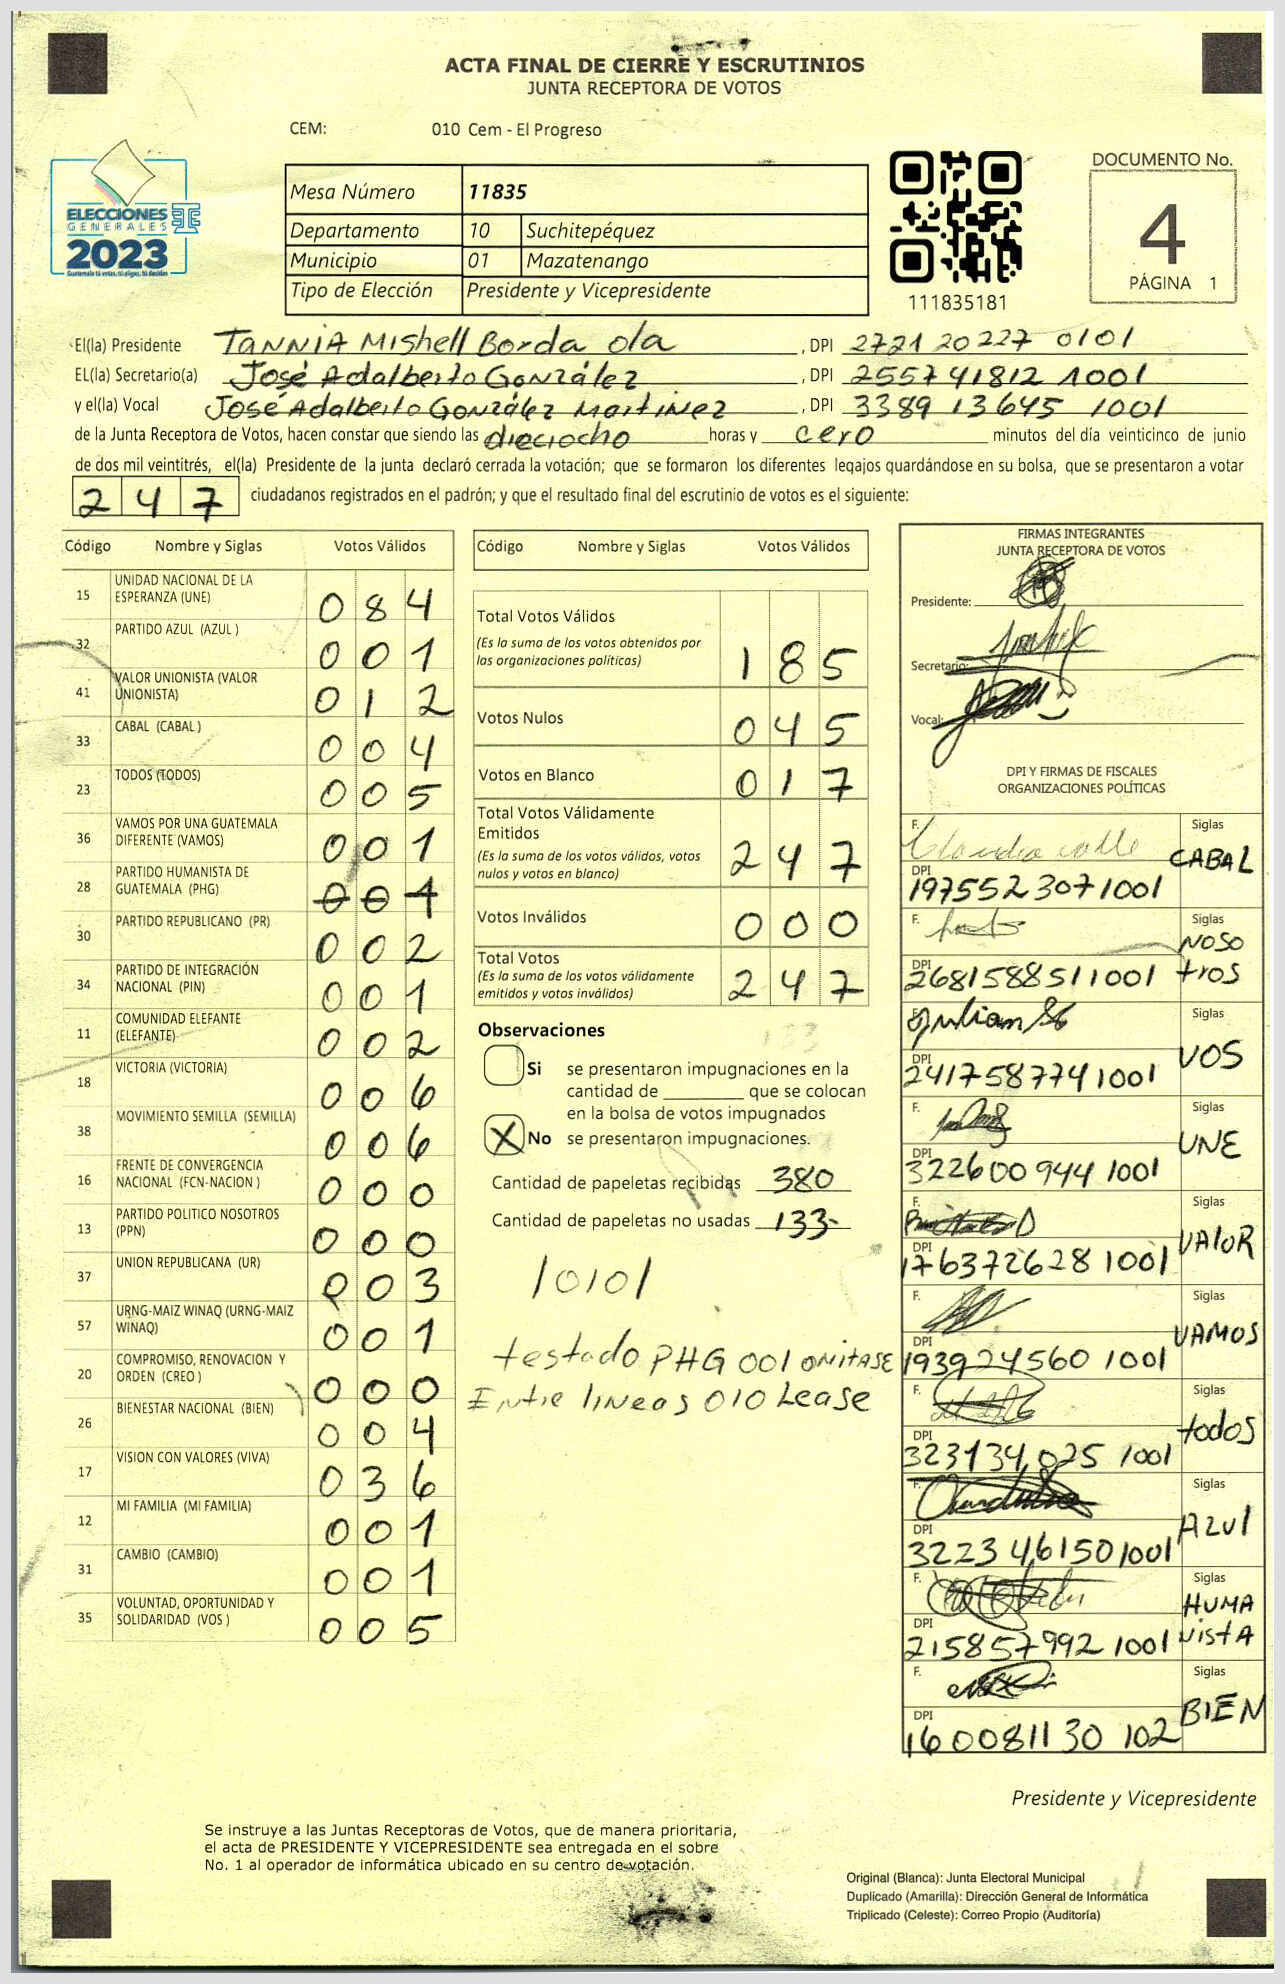 ACTA FINAL DE CIERRE Y ESCRUTINIOS
JUNTA RECEPTORA DE VOTOS
CEM: 010 Cem - El Progreso
ELECCIONES
GENERALES
2023
Mesa Número 11835
Departamento 10 Suchitepéquez
Municipio 01 Mazatenango
Tipo de Elección Presidente y Vicepresidente
111835181
DOCUMENTO No.
4
PÁGINA 1
El(la) Presidente TANNIA Mishell Borda Ola , DPI 2721 20227 0101
EL(la) Secretario(a) José Adalberto González , DPI 255741812 1001
y el(la) Vocal José Adalberto González Martinez , DPI 3389 13645 1001
de la Junta Receptora de Votos, hacen constar que siendo las dieciocho horas y cero minutos del día veinticinco de junio
de dos mil veintitrés, el(la) Presidente de la junta declaró cerrada la votación; que se formaron los diferentes legajos guardándose en su bolsa, que se presentaron a votar
247 ciudadanos registrados en el padrón; y que el resultado final del escrutinio de votos es el siguiente:
Código Nombre y Siglas Votos Válidos
15 UNIDAD NACIONAL DE LA ESPERANZA (UNE) 084
32 PARTIDO AZUL (AZUL ) 001
41 VALOR UNIONISTA (VALOR UNIONISTA) 012
33 CABAL (CABAL ) 004
23 TODOS (TODOS) 005
36 VAMOS POR UNA GUATEMALA DIFERENTE (VAMOS) 001
28 PARTIDO HUMANISTA DE GUATEMALA (PHG) 001
30 PARTIDO REPUBLICANO (PR) 002
34 PARTIDO DE INTEGRACIÓN NACIONAL (PIN) 001
11 COMUNIDAD ELEFANTE (ELEFANTE) 002
18 VICTORIA (VICTORIA) 006
38 MOVIMIENTO SEMILLA (SEMILLA) 006
16 FRENTE DE CONVERGENCIA NACIONAL (FCN-NACION ) 000
13 PARTIDO POLITICO NOSOTROS (PPN) 000
37 UNION REPUBLICANA (UR) 003
57 URNG-MAIZ WINAQ (URNG-MAIZ WINAQ) 001
20 COMPROMISO, RENOVACION Y ORDEN (CREO ) 000
26 BIENESTAR NACIONAL (BIEN) 004
17 VISION CON VALORES (VIVA) 036
12 MI FAMILIA (MI FAMILIA) 001
31 CAMBIO (CAMBIO) 001
35 VOLUNTAD, OPORTUNIDAD Y SOLIDARIDAD (VOS ) 005
Código Nombre y Siglas Votos Válidos
Total Votos Válidos 185
(Es la suma de los votos obtenidos por
las organizaciones políticas)
Votos Nulos 045
Votos en Blanco 017
Total Votos Válidamente
Emitidos 247
(Es la suma de los votos válidos, votos
nulos y votos en blanco)
Votos Inválidos 000
Total Votos 247
(Es la suma de los votos válidamente
emitidos y votos inválidos)
Observaciones
133
Si se presentaron impugnaciones en la
cantidad de ________ que se colocan
en la bolsa de votos impugnados
X No se presentaron impugnaciones.
Cantidad de papeletas recibidas 380
Cantidad de papeletas no usadas 133-
10101
testado PHG 001 OMITASE
Entre lineas 010 Lease
FIRMAS INTEGRANTES
JUNTA RECEPTORA DE VOTOS
Presidente:
Secretario:
Vocal:
DPI Y FIRMAS DE FISCALES
ORGANIZACIONES POLÍTICAS
F. Claudia Siglas CABAL
DPI 197552307 1001
F. Siglas NOSOtros
DPI 268158851 1001
F. Julian Siglas VOS
DPI 241758774 1001
F. Siglas UNE
DPI 322600944 1001
F. Siglas VALOR
DPI 1763726281001
F. Siglas VAMOS
DPI 193924560 1001
F. Siglas todos
DPI 323134025 1001
F. Siglas AZUl
DPI 322346150 1001
F. Siglas HUMAnistA
DPI 215857992 1001
F. Siglas BIEN
DPI 160081130 102
Presidente y Vicepresidente
Se instruye a las Juntas Receptoras de Votos, que de manera prioritaria,
el acta de PRESIDENTE Y VICEPRESIDENTE sea entregada en el sobre
No. 1 al operador de informática ubicado en su centro de votación.
Original (Blanca): Junta Electoral Municipal
Duplicado (Amarilla): Dirección General de Informática
Triplicado (Celeste): Correo Propio (Auditoría)